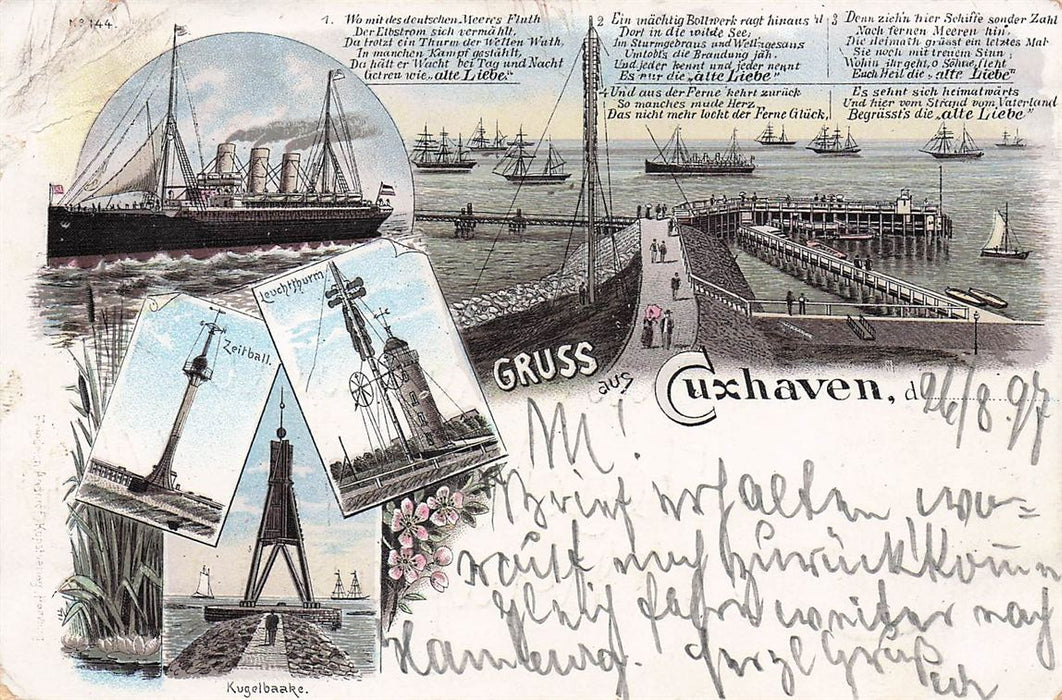 No 144.
1. Wo mit des deutschen Meeres Fluth
Der Elbstrom sich vermählt,
Da trotzt ein Thurm der Wellen Wuth,
In manchen Kampf gestählt
Da hält er Wacht bei Tag und Nacht
Getreu wie „alte Liebe."
2 Ein mächtig Bollwerk ragt hinaus
Dort in die wilde See,
Im Sturmgebraus und Well'ngesaus
Umtobt's der Brandung jäh.
Und jeder kennt und jeder nennt
Es nur die „alte Liebe"
3 Denn zieh'n hier Schiffe sonder Zahl
Nach fernen Meeren hin,
Die Heimath grüsst ein letztes Mal
Sie noch mit treuem Sinn;
Wohin ihr geht, o Söhne, fleht
Euch Heil die „alte Liebe"
4 Und aus der Ferne kehrt zurück
So manches müde Herz,
Das nicht mehr lockt der Ferne Glück,
Es sehnt sich heimatwärts
Und hier vom Strand vom Vaterland
Begrüsst's die „alte Liebe"
Leuchtthurm
Zeitball.
GRUSS
aus
Cuxhaven, d 26/8.97
M!
Brief erhalten, wo=
rauf noch zurückkomme
Gleich fahre weiter nach
Hamburg. Herzl Gruß
Kugelbaake.